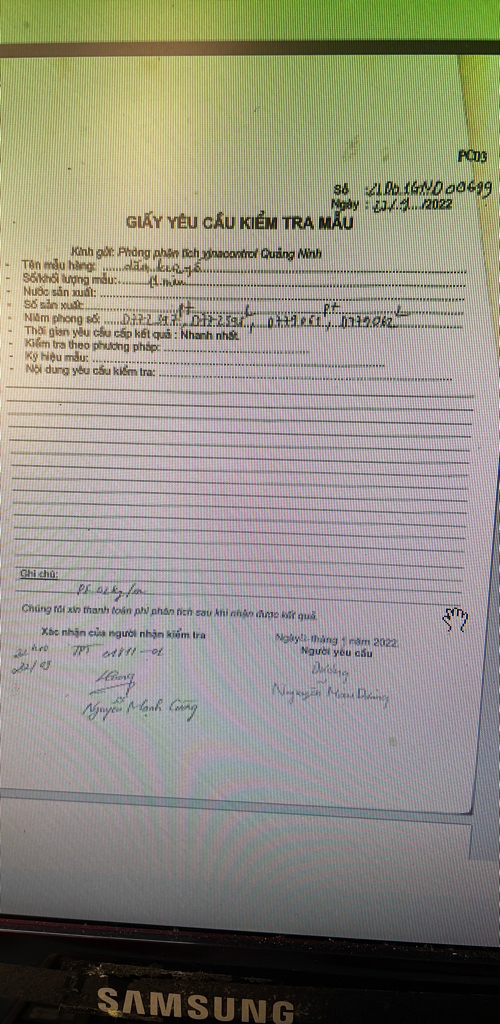 PC03
Số : 22.D01GND00699
Ngày : 22/.9.../2022
GIẤY YÊU CẦU KIỂM TRA MẪU
Kính gửi: Phòng phân tích vinacontrol Quảng Ninh
- Tên mẫu hàng: dăm
- Số/khối lượng mẫu: mẫu
- Nước sản xuất:
- Số sản xuất:
- Niêm phong số: 0772597, 0772598, 0779061, 0779062
- Thời gian yêu cầu cấp kết quả : Nhanh nhất
- Kiểm tra theo phương pháp:
- Ký hiệu mẫu:
- Nội dung yêu cầu kiểm tra:
Ghi chú:
PT 02kg/m
Chúng tôi xin thanh toán phí phân tích sau khi nhận được kết quả
Xác nhận của người nhận kiểm tra
Ngày tháng 9 năm 2022.
Người yêu cầu
TPT 01811-01
22/09
Nguyễn Mạnh Cường
Nguyễn
SAMSUNG